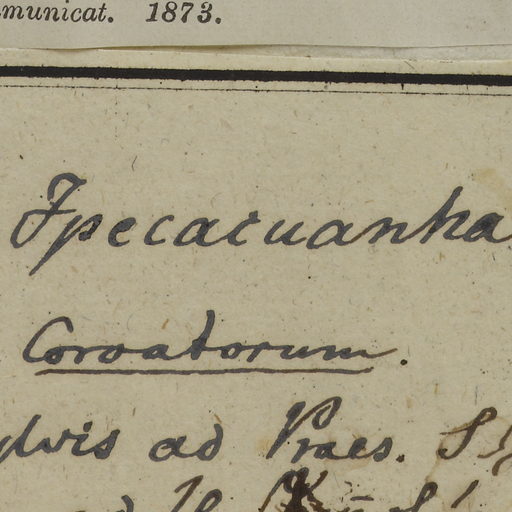 municat. 1873.
Ipecacuanha
Coroatorum.
ylvis ad Praes. S
ad